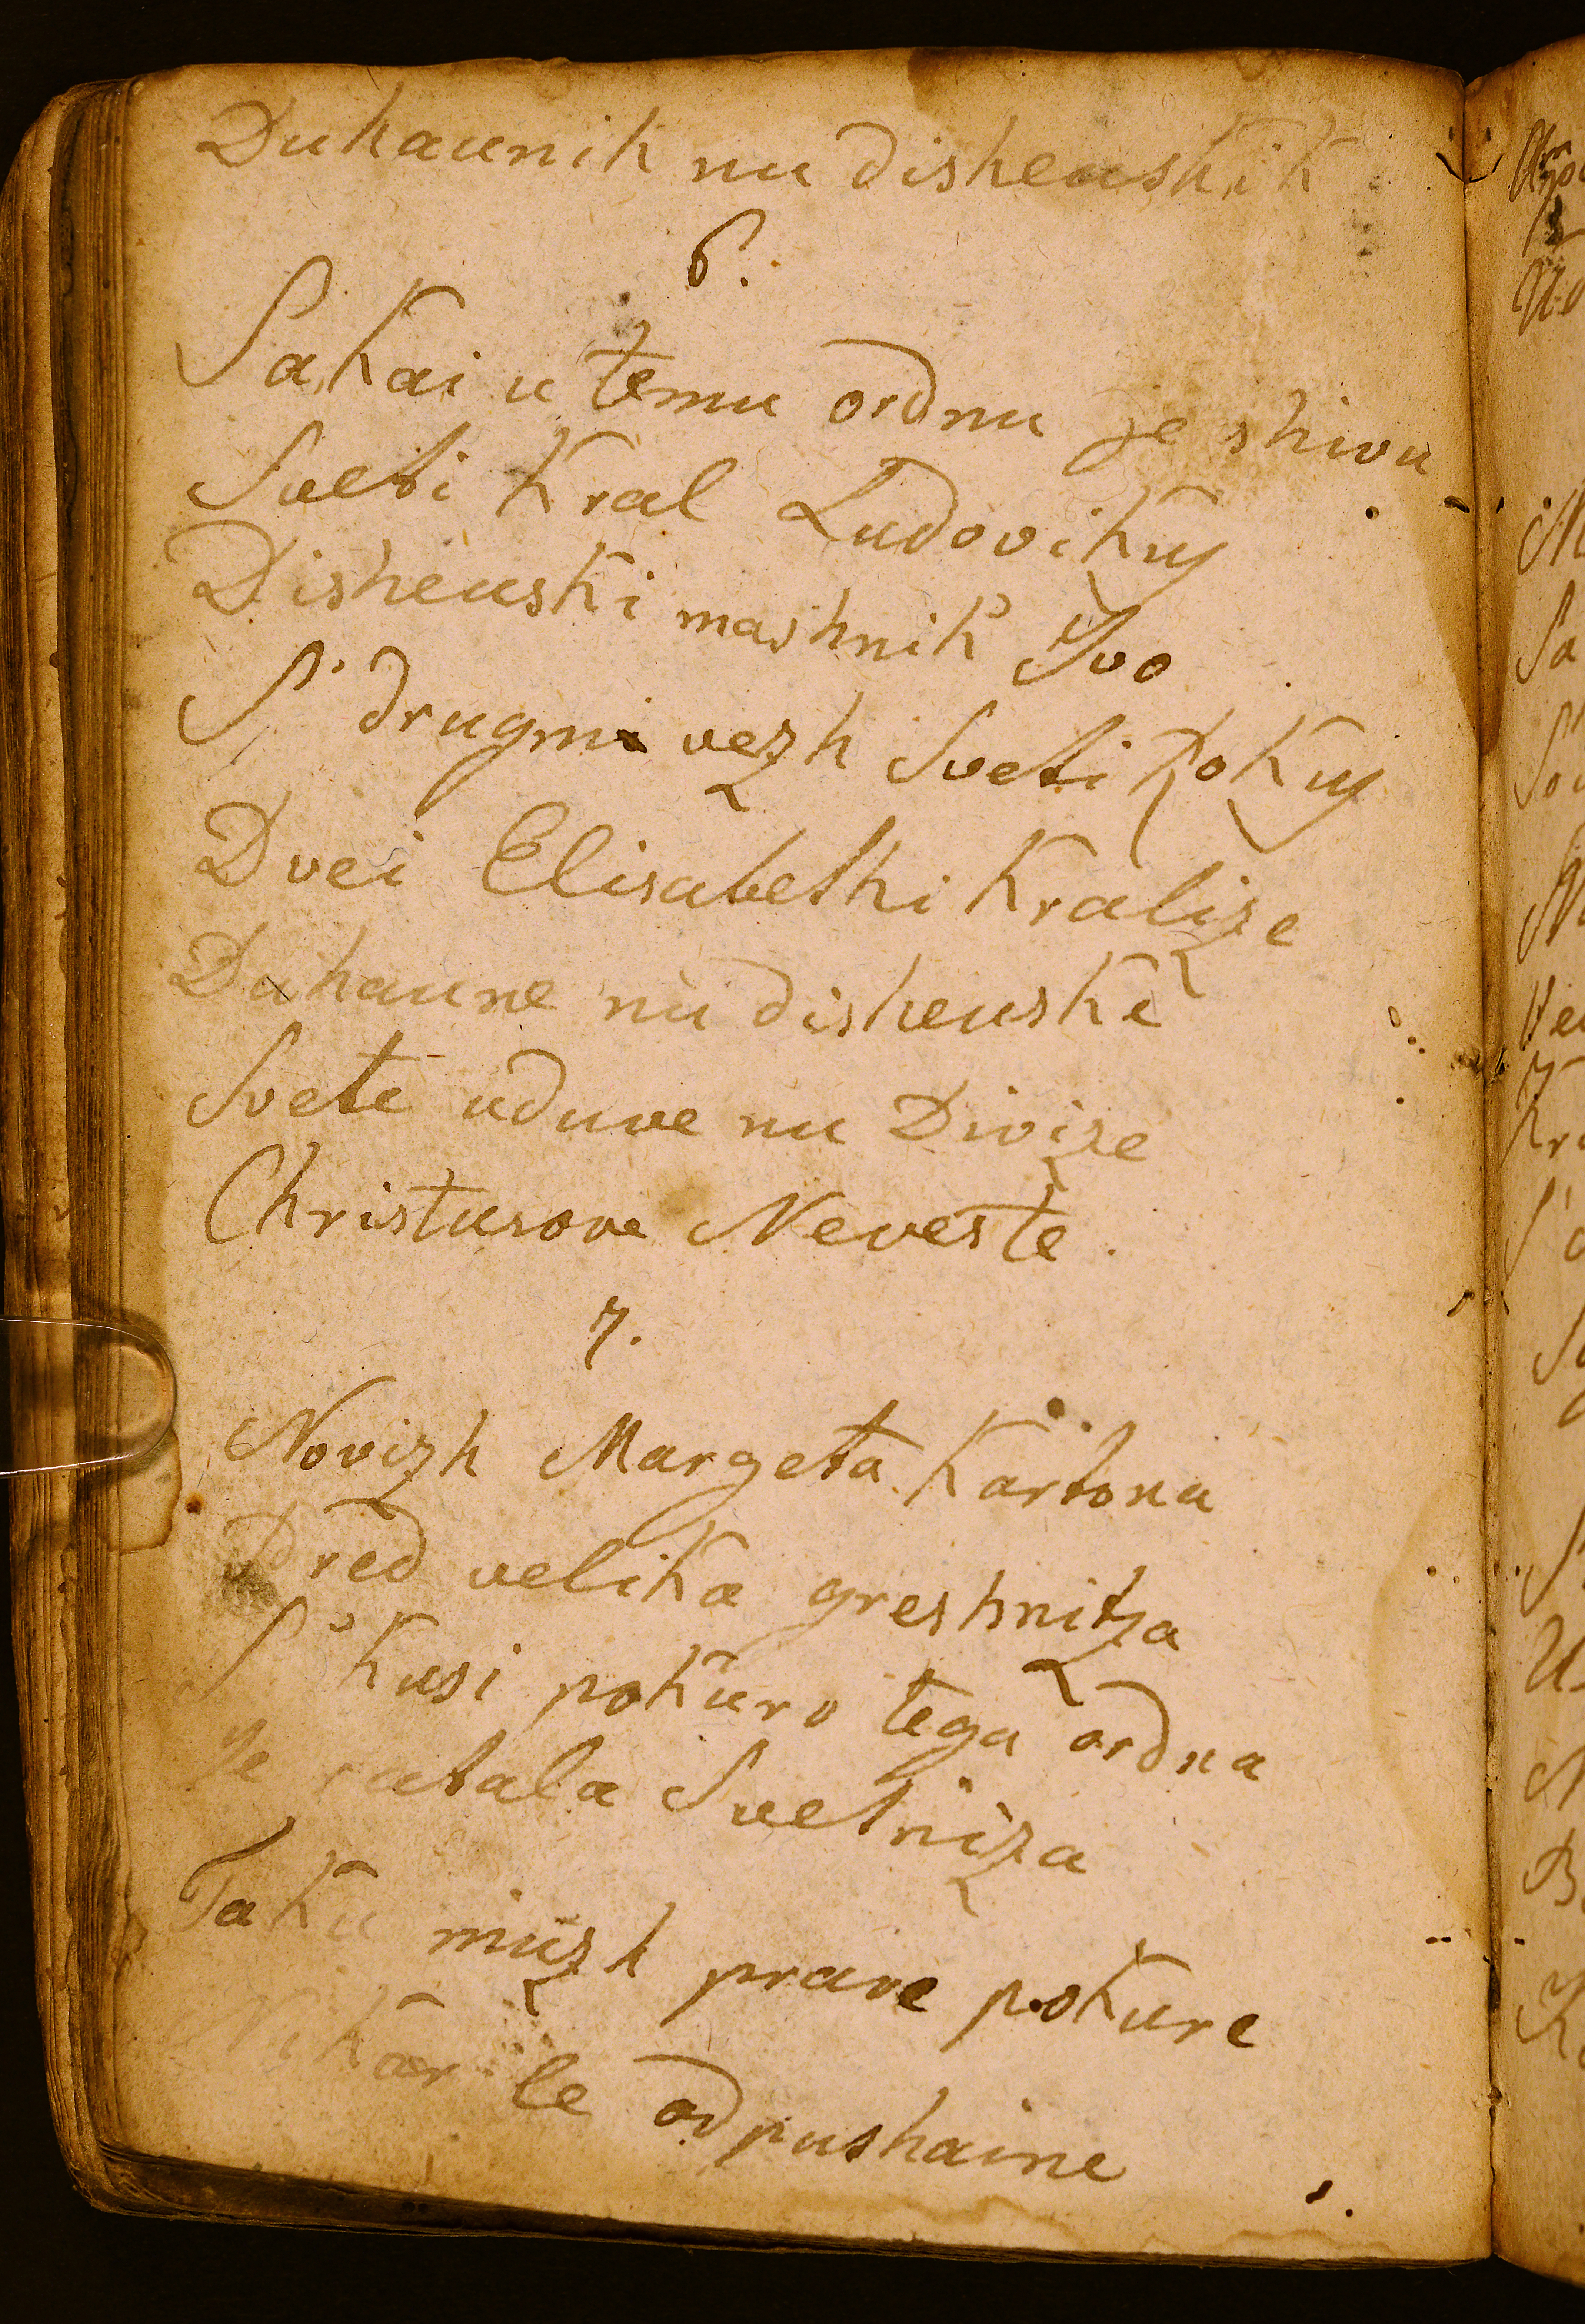 Duhaunik nu disheuskik
6.
Sakai u temu ordnu je shivu
Sveti Kral Ludovikus
Disheuski mashnik Ivo
S' drugmi vezh Sveti Rokus
Dvei Elisabethi Kralize
Duhaune nu disheuske
Svete uduve nu Divize
Christusove Neveste.
7.
Novizh Margeta Kartona
Pred velika greshnitza
S' kusi pokuro tega ordna
Je ratala Svetniza
Taku muzh prave pokure
Nikar le odpushaine